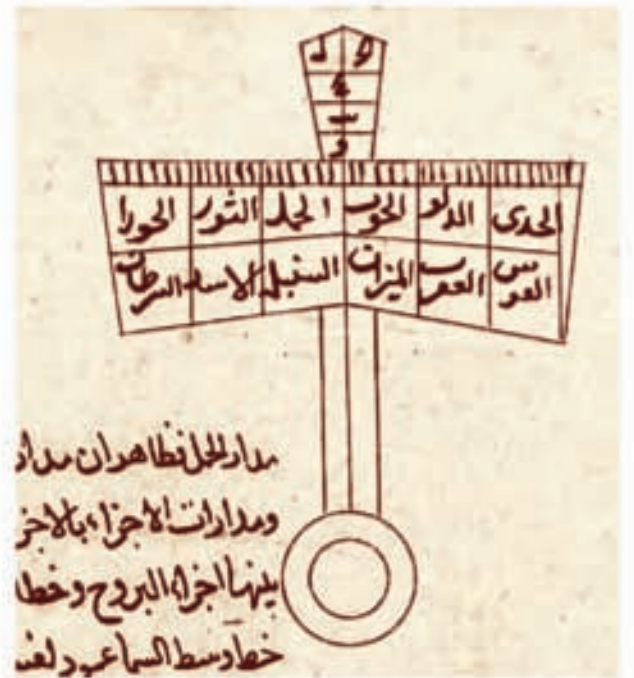 و
الجدى الدلو الحوت الحمل الثور الحورا
القوس العقرب الميزان السنبله الاسد السرطان
مدار الحمل فظاهر ان مدار
ومدارات الاجزاء بالاجز
بينها اجزاء البروج وخطا
خط وسط السما